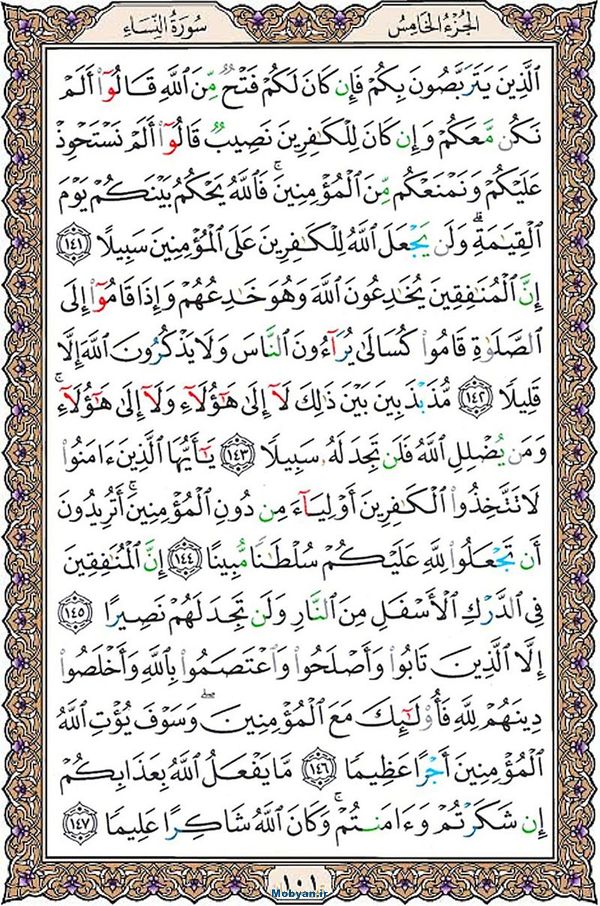 الجُزْءُ الخَامِسُ
سُورَةُ النِّسَاءِ
ٱلَّذِينَ يَتَرَبَّصُونَ بِكُمْ فَإِن كَانَ لَكُمْ فَتْحٌ مِّنَ ٱللَّهِ قَالُوٓا۟ أَلَمْ
نَكُن مَّعَكُمْ وَإِن كَانَ لِلْكَٰفِرِينَ نَصِيبٌ قَالُوٓا۟ أَلَمْ نَسْتَحْوِذْ
عَلَيْكُمْ وَنَمْنَعْكُم مِّنَ ٱلْمُؤْمِنِينَ ۚ فَٱللَّهُ يَحْكُمُ بَيْنَكُمْ يَوْمَ
ٱلْقِيَٰمَةِ ۗ وَلَن يَجْعَلَ ٱللَّهُ لِلْكَٰفِرِينَ عَلَى ٱلْمُؤْمِنِينَ سَبِيلًا ١٤١
إِنَّ ٱلْمُنَٰفِقِينَ يُخَٰدِعُونَ ٱللَّهَ وَهُوَ خَٰدِعُهُمْ وَإِذَا قَامُوٓا۟ إِلَى
ٱلصَّلَوٰةِ قَامُوا۟ كُسَالَىٰ يُرَآءُونَ ٱلنَّاسَ وَلَا يَذْكُرُونَ ٱللَّهَ إِلَّا
قَلِيلًا ١٤٢ مُّذَبْذَبِينَ بَيْنَ ذَٰلِكَ لَآ إِلَىٰ هَٰٓؤُلَآءِ وَلَآ إِلَىٰ هَٰٓؤُلَآءِ ۚ
وَمَن يُضْلِلِ ٱللَّهُ فَلَن تَجِدَ لَهُۥ سَبِيلًا ١٤٣ يَٰٓأَيُّهَا ٱلَّذِينَ ءَامَنُوا۟
لَا تَتَّخِذُوا۟ ٱلْكَٰفِرِينَ أَوْلِيَآءَ مِن دُونِ ٱلْمُؤْمِنِينَ ۚ أَتُرِيدُونَ
أَن تَجْعَلُوا۟ لِلَّهِ عَلَيْكُمْ سُلْطَٰنًا مُّبِينًا ١٤٤ إِنَّ ٱلْمُنَٰفِقِينَ
فِى ٱلدَّرْكِ ٱلْأَسْفَلِ مِنَ ٱلنَّارِ وَلَن تَجِدَ لَهُمْ نَصِيرًا ١٤٥
إِلَّا ٱلَّذِينَ تَابُوا۟ وَأَصْلَحُوا۟ وَٱعْتَصَمُوا۟ بِٱللَّهِ وَأَخْلَصُوا۟
دِينَهُمْ لِلَّهِ فَأُو۟لَٰٓئِكَ مَعَ ٱلْمُؤْمِنِينَ ۖ وَسَوْفَ يُؤْتِ ٱللَّهُ
ٱلْمُؤْمِنِينَ أَجْرًا عَظِيمًا ١٤٦ مَّا يَفْعَلُ ٱللَّهُ بِعَذَابِكُمْ
إِن شَكَرْتُمْ وَءَامَنتُمْ ۚ وَكَانَ ٱللَّهُ شَاكِرًا عَلِيمًا ١٤٧
١٠١
Mobyan.ir